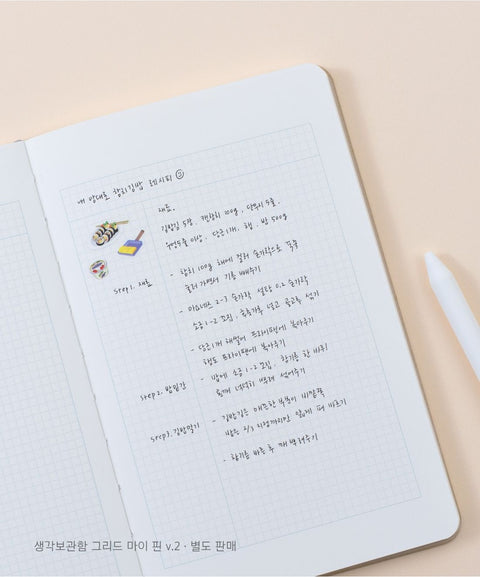 내 맘대로 참치김밥 레시피
재료.
김밥김 5장, 캔참치 200g, 단무지 5줄,
우엉두줄 이상, 당근 1개, 햄, 밥 500g
step1. 재료
- 참치 100g 체에 걸러 숟가락으로 꾹꾹
눌러가면서 기름 빼주기
- 마요네즈 2-3 숟가락 설탕 0.2 숟가락
소금 1-2 꼬집, 후춧가루 넣고 골고루 섞기
- 당근 1개 채썰어 프라이팬에 볶아주기
햄도 프라이팬에 볶아주기
step2. 밥밑간
- 밥에 소금 1-2 꼬집, 참기름 한 바퀴!
함께 넉넉히 뿌려 섞어주기
step3. 김밥말기
- 김밥김은 매끈한 부분이 바깥쪽
밥은 2/3 지점까지만 얇게 펴 바르기
- 참기름 바른 후 깨 뿌려주기
생각보관함 그리드 마이 핀 v.2 · 별도 판매